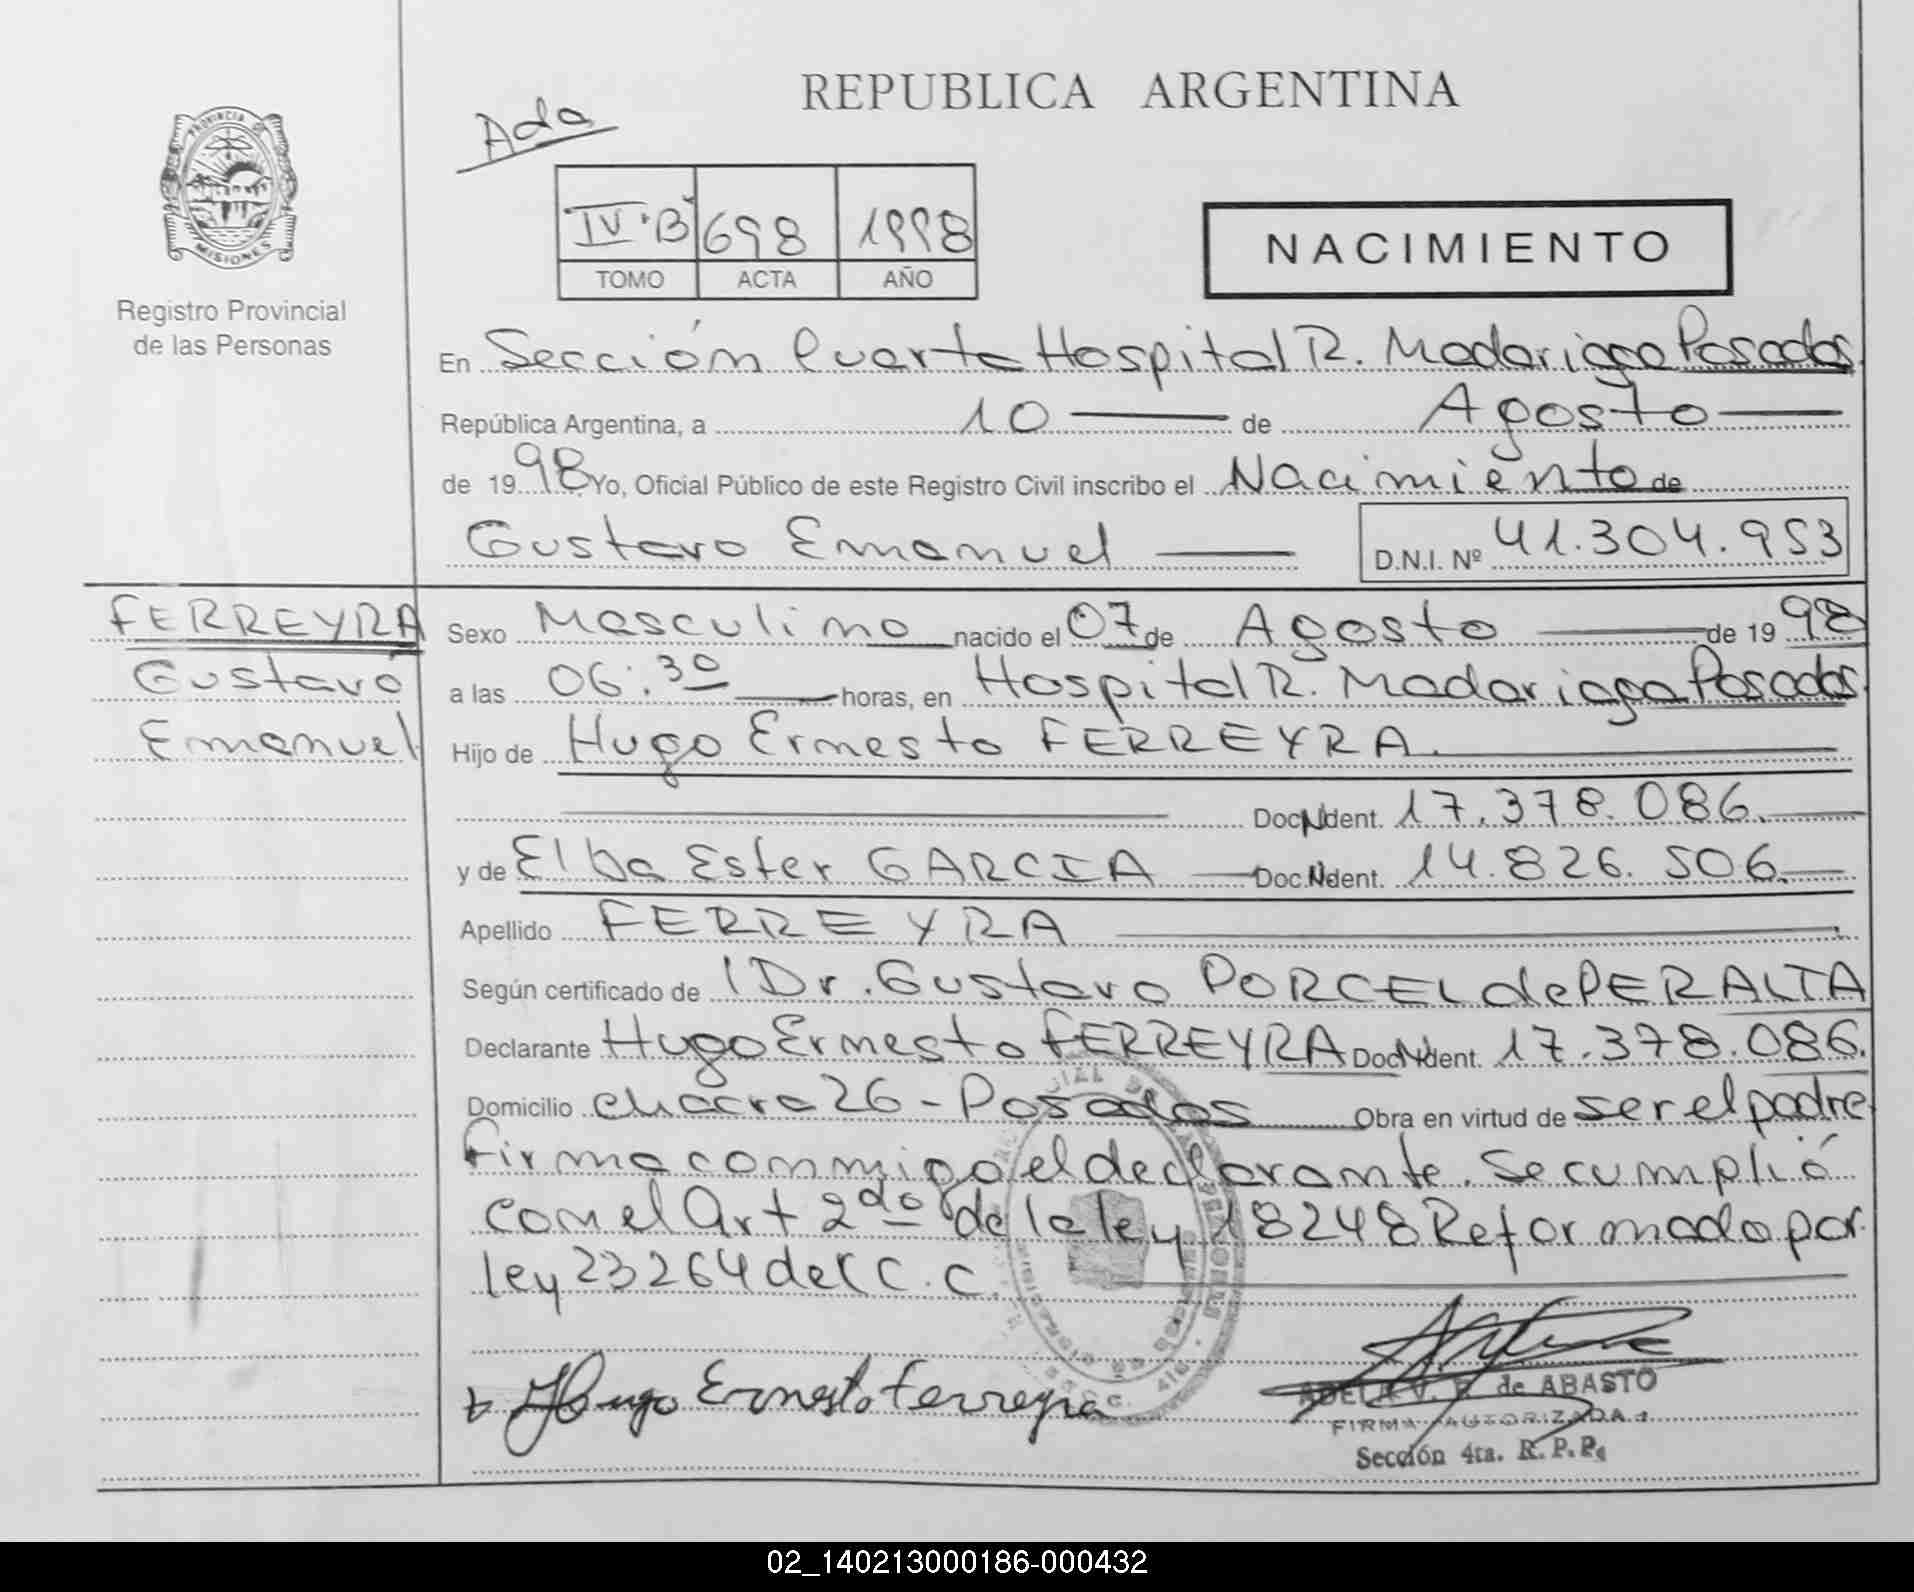 REPUBLICA ARGENTINA
Ada
PROVINCIA DE
MISIONES
IV "B" 698 1998
TOMO ACTA AÑO
NACIMIENTO
Registro Provincial
de las Personas
En Sección Cuarta Hospital R. Madariaga Posadas.
República Argentina, a 10 de Agosto
de 1998 Yo, Oficial Público de este Registro Civil inscribo el Nacimiento de
Gustavo Emanuel D.N.I. Nº 41.304.953
FERREYRA
Gustavo
Emanuel
Sexo Masculino nacido el 07 de Agosto de 1998
a las 06:30 horas, en Hospital R. Madariaga Posadas.
Hijo de Hugo Ernesto FERREYRA.
Doc. Ident. 17.378.086.
y de Elba Ester GARCIA Doc. Ident. 14.826.506.
Apellido FERREYRA
Según certificado de Dr. Gustavo PORCEL de PERALTA
Declarante Hugo Ernesto FERREYRA Doc. Ident. 17.378.086.
Domicilio chacra 26 - Posadas Obra en virtud de ser el padre
Firma conmigo el declarante. Se cumplió
con el Art 2do de la ley 18248 Reformado por
ley 23264 del C.C.
Hugo Ernesto Ferreyra
ADELA V. de ABASTO
FIRMA AUTORIZADA
Sección 4ta. R.P.P.
02_140213000186-000432